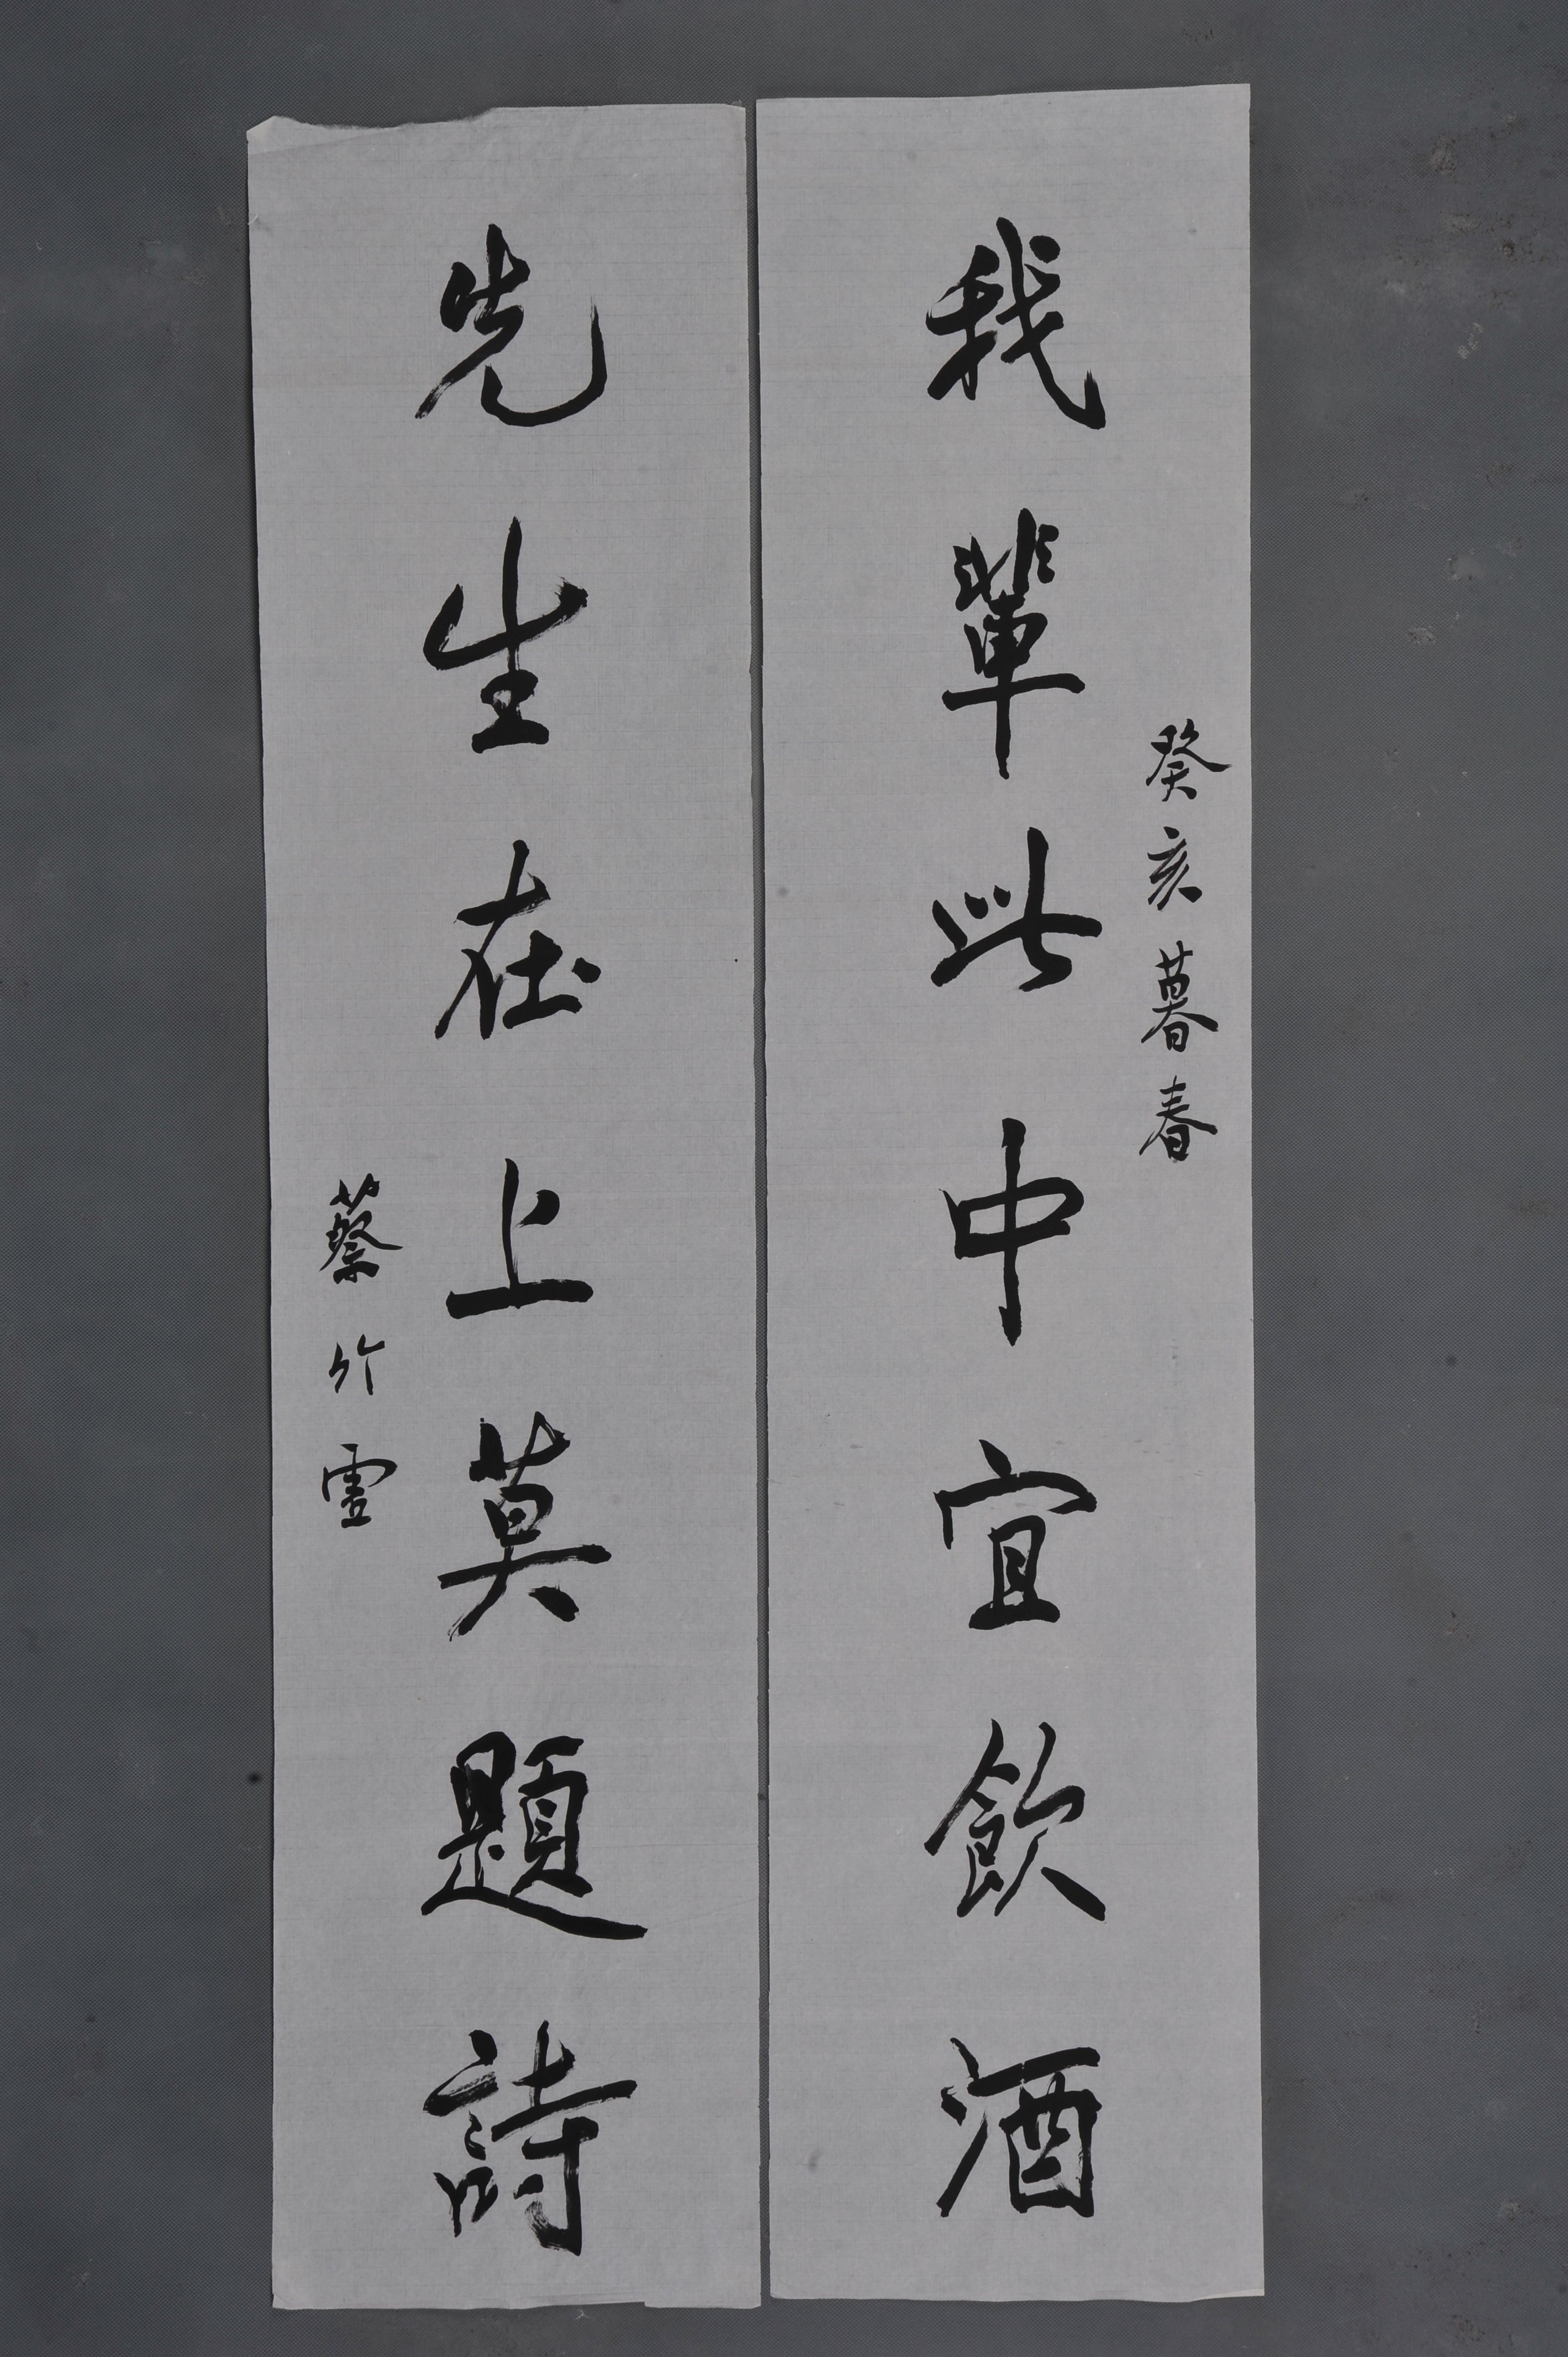 癸亥暮春
我輩此中宜飲酒
先生在上莫題詩
蔡竹虛